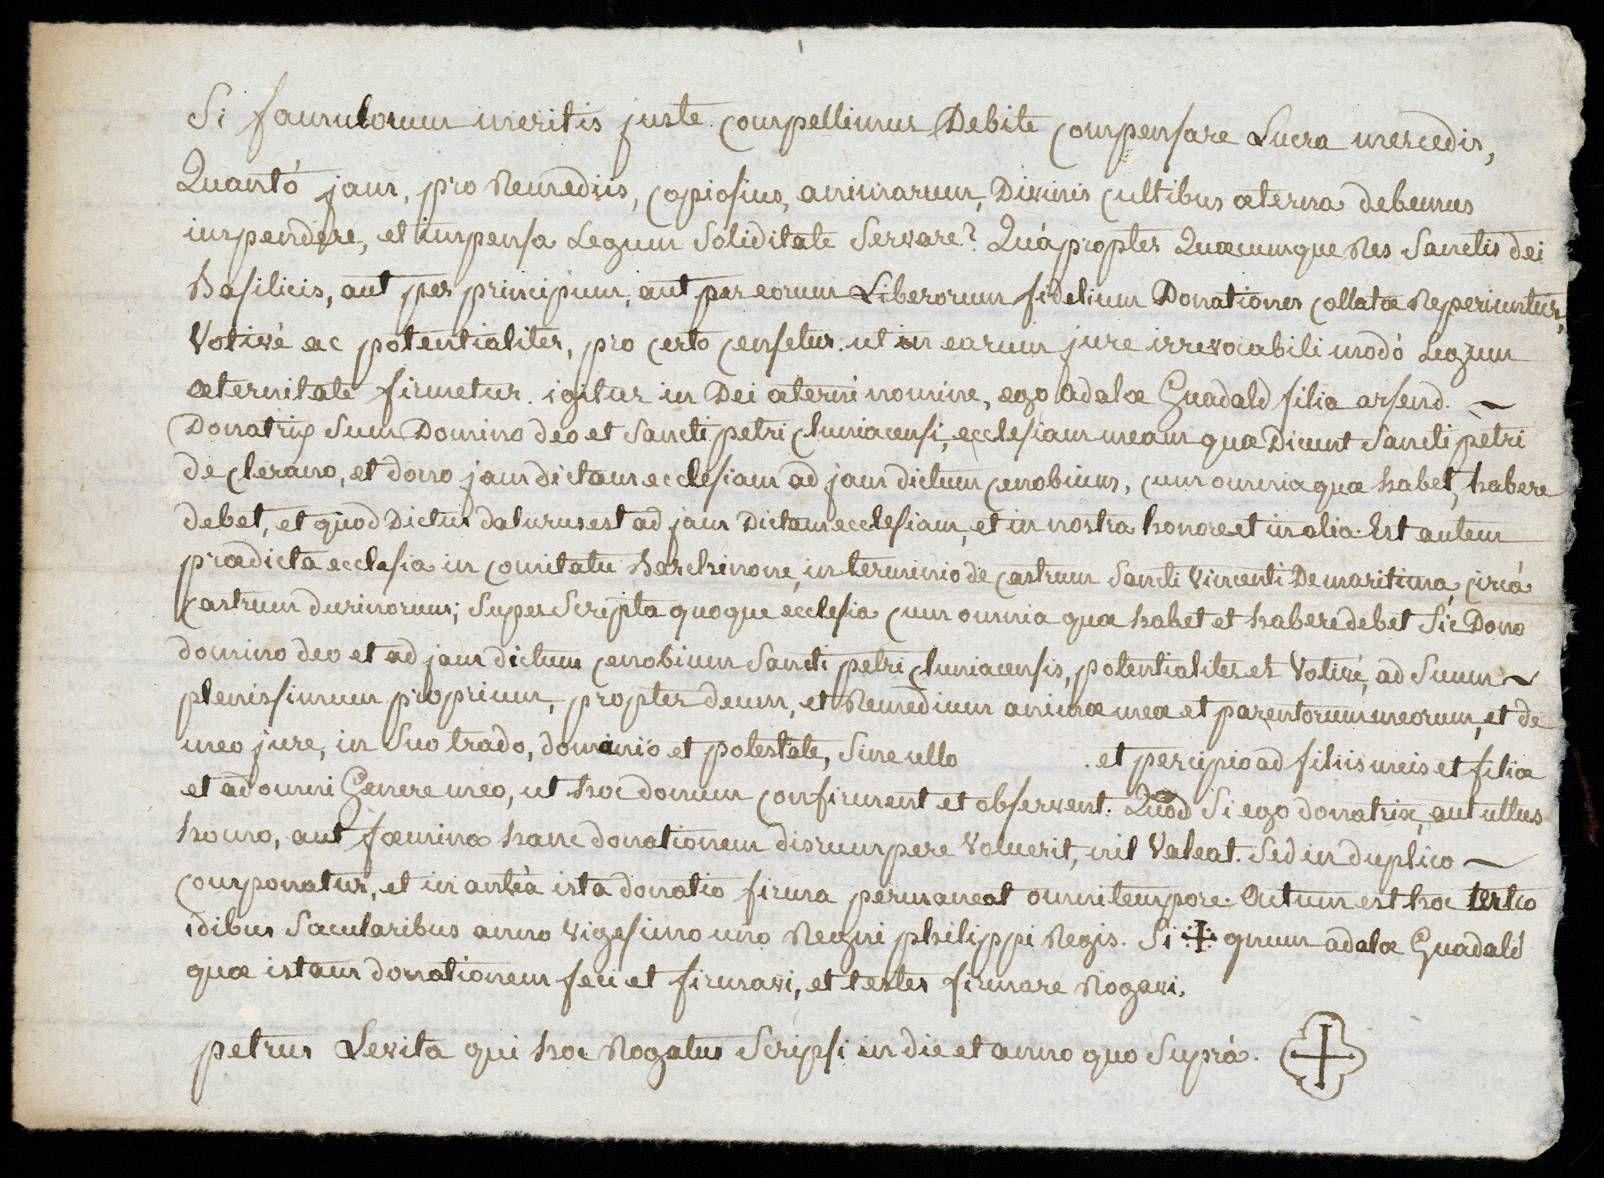 Si famulorum meritis juste compellimur Debite compensare Lucra mercedis,
Quantó jam, pro Remediis, copiosius, animarum, Divinis cultibus æterna debemus
impendere, et impensa Legum Soliditate Servare? Quápropter Quæcumque Res Sanctis dei
Basilicis, aut per principum, aut per eorum Liberorum fidelium Donationes collatæ Reperiuntur,
Votivé ac potentialiter, pro certo censetur. ut in earum jure irrevocabili modó Legum
æternitate firmetur. igitur in Dei æterni nomine, ego Adalæ Guadald filia arsend.
Donatrix Sum Domino deo et Sancti petri Cluniacensi, ecclesiam meam quæ Dicunt Sancti petri
de Clerano, et dono jam dictam ecclesiam ad jam dictum Cenobium, cum omnia quæ habet, habere
debet, et quod Dictus daturus est ad jam Dictam ecclesiam, et in nostra honore et in alia. Est autem
prædicta ecclesia in comitatu Barchinone, in terminio de castrum Sancti Vincenti De maritima, circá
Castrum durinorum; Super Scripta quoque ecclesia cum omnia quæ habet et habere debet Sic Dono
domino deo et ad jam dictum Cenobium Sancti petri Cluniacensis, potentialiter et Votivé, ad Suum
plenissimum proprium, propter deum, et Remedium animæ meæ et parentorum meorum, et de
meo jure, in Suo trado, dominio et potestate, Sine ullo . et percipio ad filiis meis et filiæ
et ad omni Genere meo, ut hoc donum confirment et observent. Quód Si ego donatrix, aut ullus
homo, aut fœmina hanc donationem disrumpere Voluerit, nil Valeat. Sed in duplico
componatur, et in anteà ista donatio firma permaneat omni tempore. Actum est hoc tertio
idibus Sæcularibus anno Vigesimo uno Regni philippi Regis. Si ✢ gnum adalæ Guadald
quæ istam donationem feci et firmavi, et testes firmare Rogavi.
petrus Levita qui hoc Rogatus Scripsi in die et anno quo Suprá.